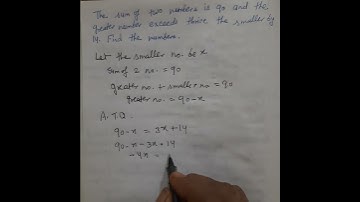 The sum of two numbers is 90 and the
greater number exceeds thrice the smaller by
14. Find the numbers.
Let the smaller no. be x
Sum of 2 no. = 90
greater no. + smaller no = 90
greater no. = 90-x
A.T.Q.
90-x = 3x+14
90-x-3x+14
-4x =